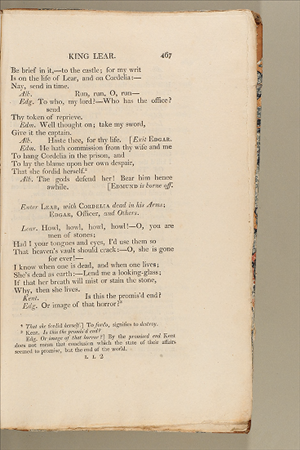 KING LEAR. 467
Be brief in it,—to the castle; for my writ
Is on the life of Lear, and on Cordelia:—
Nay, send in time.
Alb. Run, run, O, run—
Edg. To who, my lord?—Who has the office?
send
Thy token of reprieve.
Edm. Well thought on; take my sword,
Give it the captain.
Alb. Haste thee, for thy life. [Exit EDGAR.
Edm. He hath commission from thy wife and me
To hang Cordelia in the prison, and
To lay the blame upon her own despair,
That she fordid herself.⁸
Alb. The gods defend her! Bear him hence
awhile. [EDMUND is borne off.
Enter LEAR, with CORDELIA dead in his Arms;
EDGAR, Officer, and Others.
Lear. Howl, howl, howl, howl!—O, you are
men of stones;
Had I your tongues and eyes, I'd use them so
That heaven's vault should crack:—O, she is gone
for ever!—
I know when one is dead, and when one lives;
She's dead as earth:—Lend me a looking-glass;
If that her breath will mist or stain the stone,
Why, then she lives.
Kent. Is this the promis'd end?
Edg. Or image of that horror?⁹
⁸ That she fordid herself.] To fordo, signifies to destroy.
⁹ Kent. Is this the promis'd end?
Edg. Or image of that horror?] By the promised end Kent
does not mean that conclusion which the state of their affairs
seemed to promise, but the end of the world.